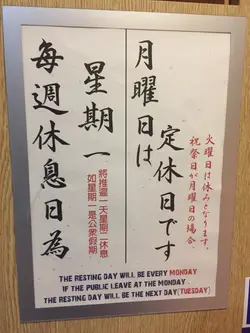 每週休息日為
星期一
如星期一是公眾假期
將推遲一天星期二休息
月曜日は
定休日です
祝祭日が月曜日の場合、
火曜日は休みとなります。
THE RESTING DAY WILL BE EVERY MONDAY
IF THE PUBLIC LEAVE AT THE MONDAY
THE RESTING DAY WILL BE THE NEXT DAY(TUESDAY)